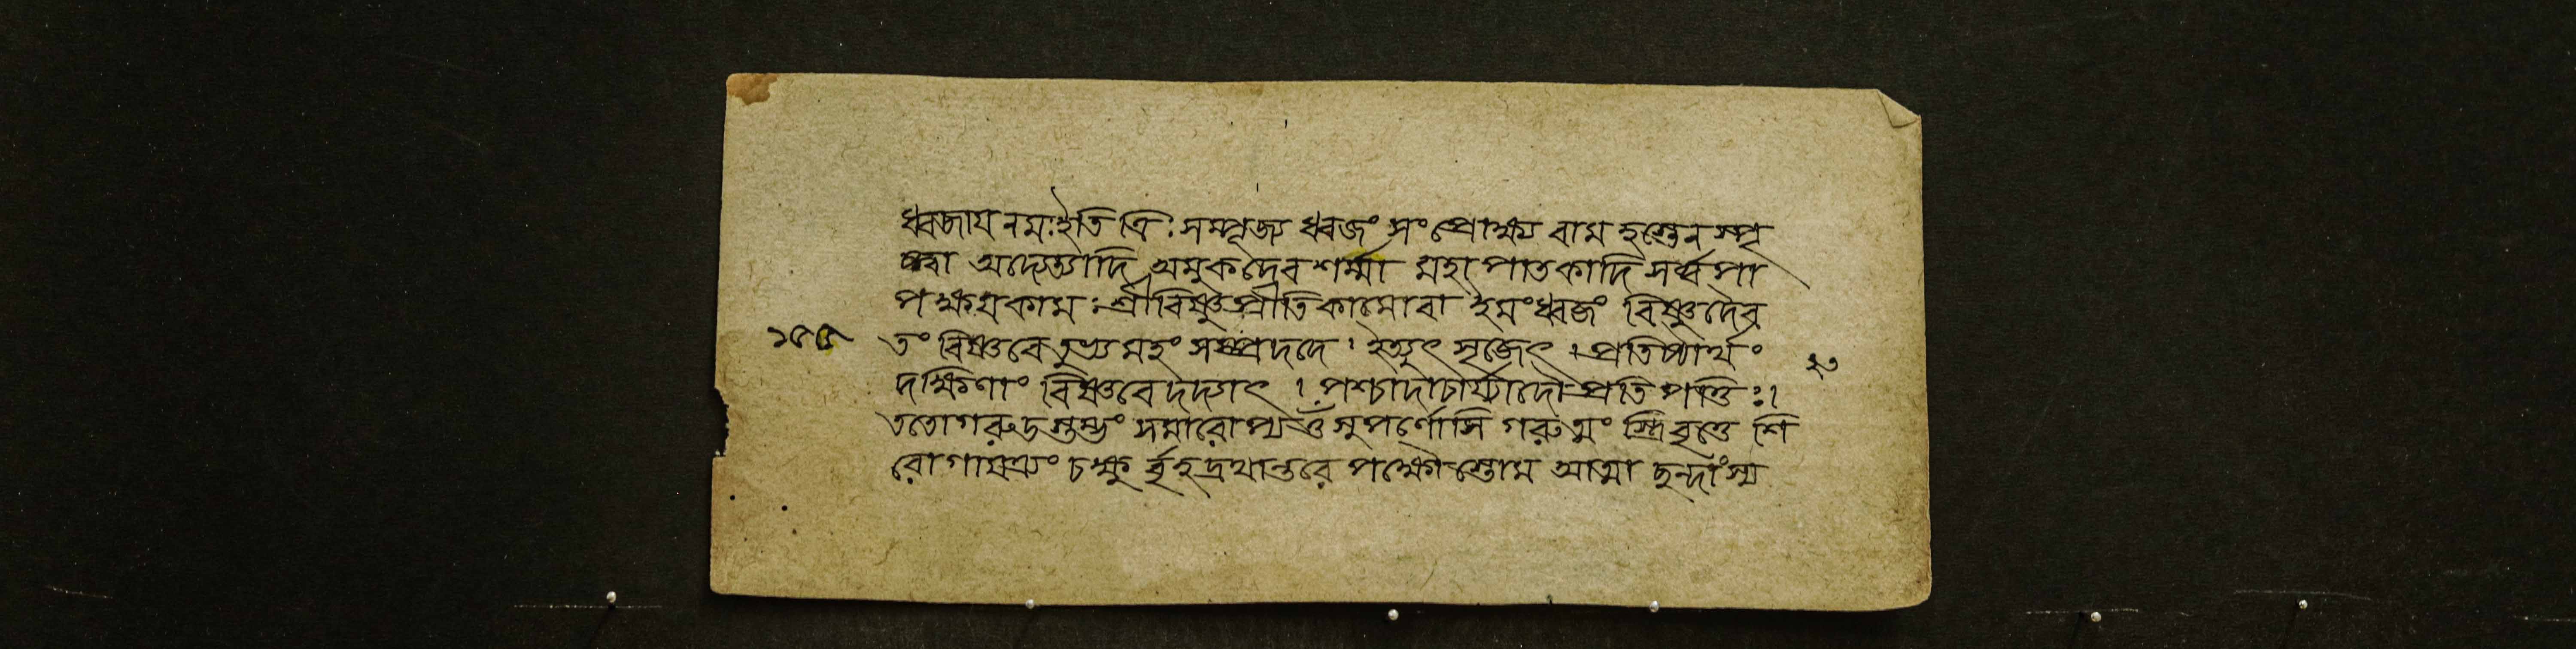 ধ্বজায নমঃ ইতি ত্রিঃ সম্পূজ্য ধ্বজং সংপ্রোক্ষ্য বাম হস্তেন স্পৃ
অদ্যেত্যাদি অমুকদেবশর্ম্মা মহাপাতকাদি সর্ব্বপা
পক্ষযকামঃ শ্রীবিষ্ণুপ্রীতিকামোবা ইমং ধ্বজং বিষ্ণুদৈব
তং বিষ্ণবে তুভ্যমহং সম্প্রদদে । ইত্যুৎসৃজেৎ । প্রতিষ্ঠার্থং
দক্ষিণাং বিষ্ণবে দদ্যাৎ । পশ্চাদাচার্য্যাদৌ প্রতিপত্তিঃ ।
ততোগরুডস্তম্ভং সমারোপ্য ওঁ সুপর্ণোসি গরুত্মং স্ত্রিবৃত্তে শি
রোগাযত্রং চক্ষু র্বৃহদ্রথান্তরে পক্ষৌ স্তোম আত্মা ছন্দাংস্য